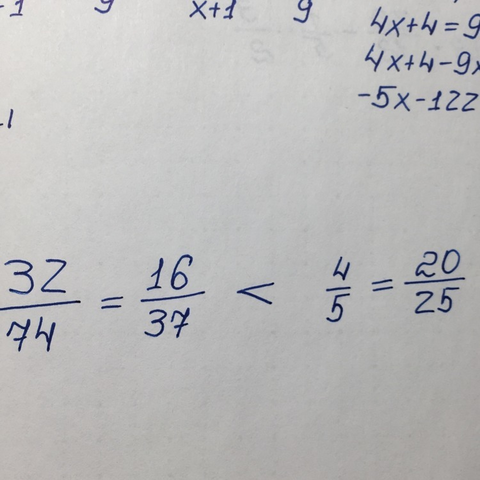 x+1 9 4x+4=9
4x+4-9x
-5x-122
32/74 = 16/37 < 4/5 = 20/25